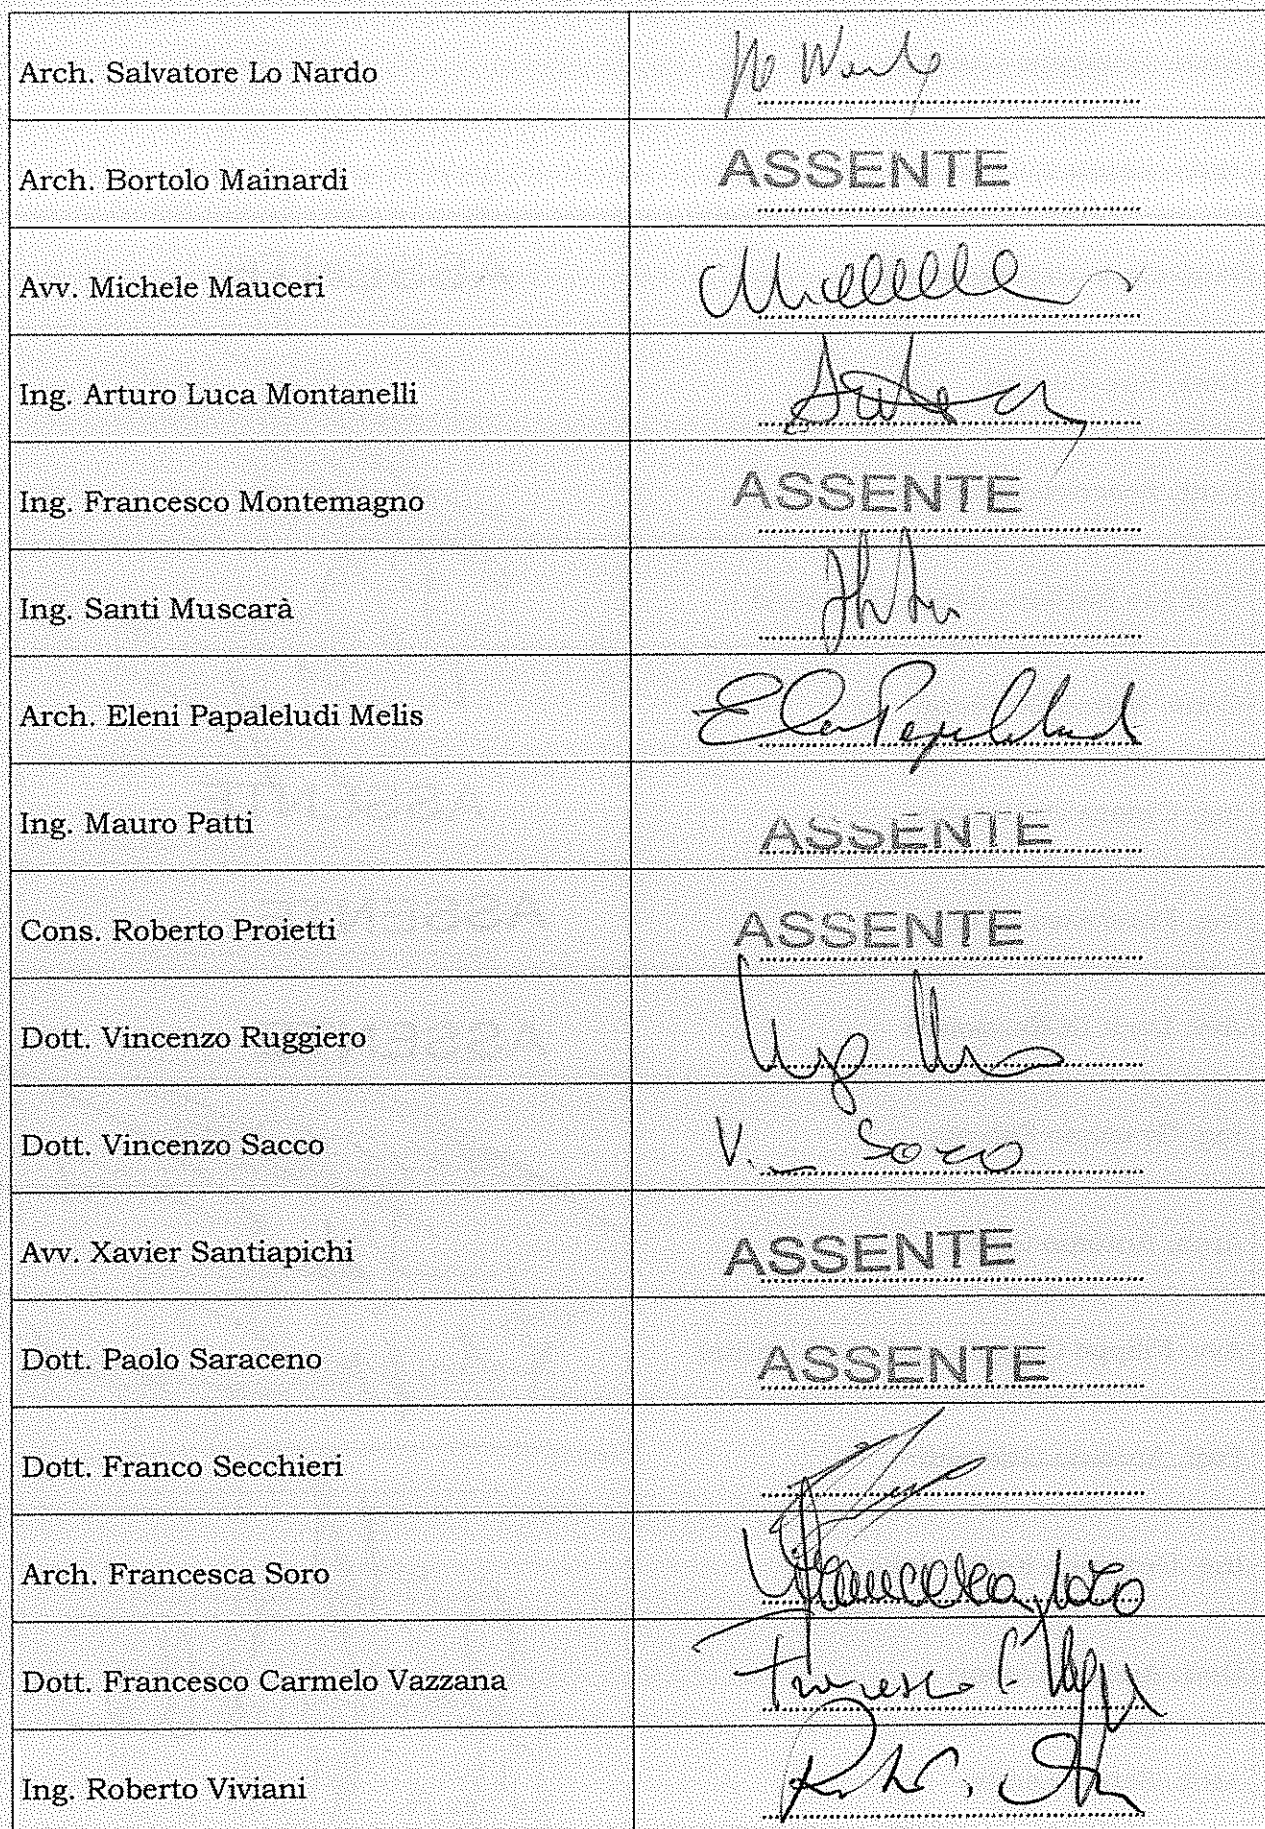 Arch. Salvatore Lo Nardo
Arch. Bortolo Mainardi ASSENTE
Avv. Michele Mauceri
Ing. Arturo Luca Montanelli
Ing. Francesco Montemagno ASSENTE
Ing. Santi Muscarà
Arch. Eleni Papaleludi Melis
Ing. Mauro Patti ASSENTE
Cons. Roberto Proietti ASSENTE
Dott. Vincenzo Ruggiero
Dott. Vincenzo Sacco
Avv. Xavier Santiapichi ASSENTE
Dott. Paolo Saraceno ASSENTE
Dott. Franco Secchieri
Arch. Francesca Soro
Dott. Francesco Carmelo Vazzana
Ing. Roberto Viviani